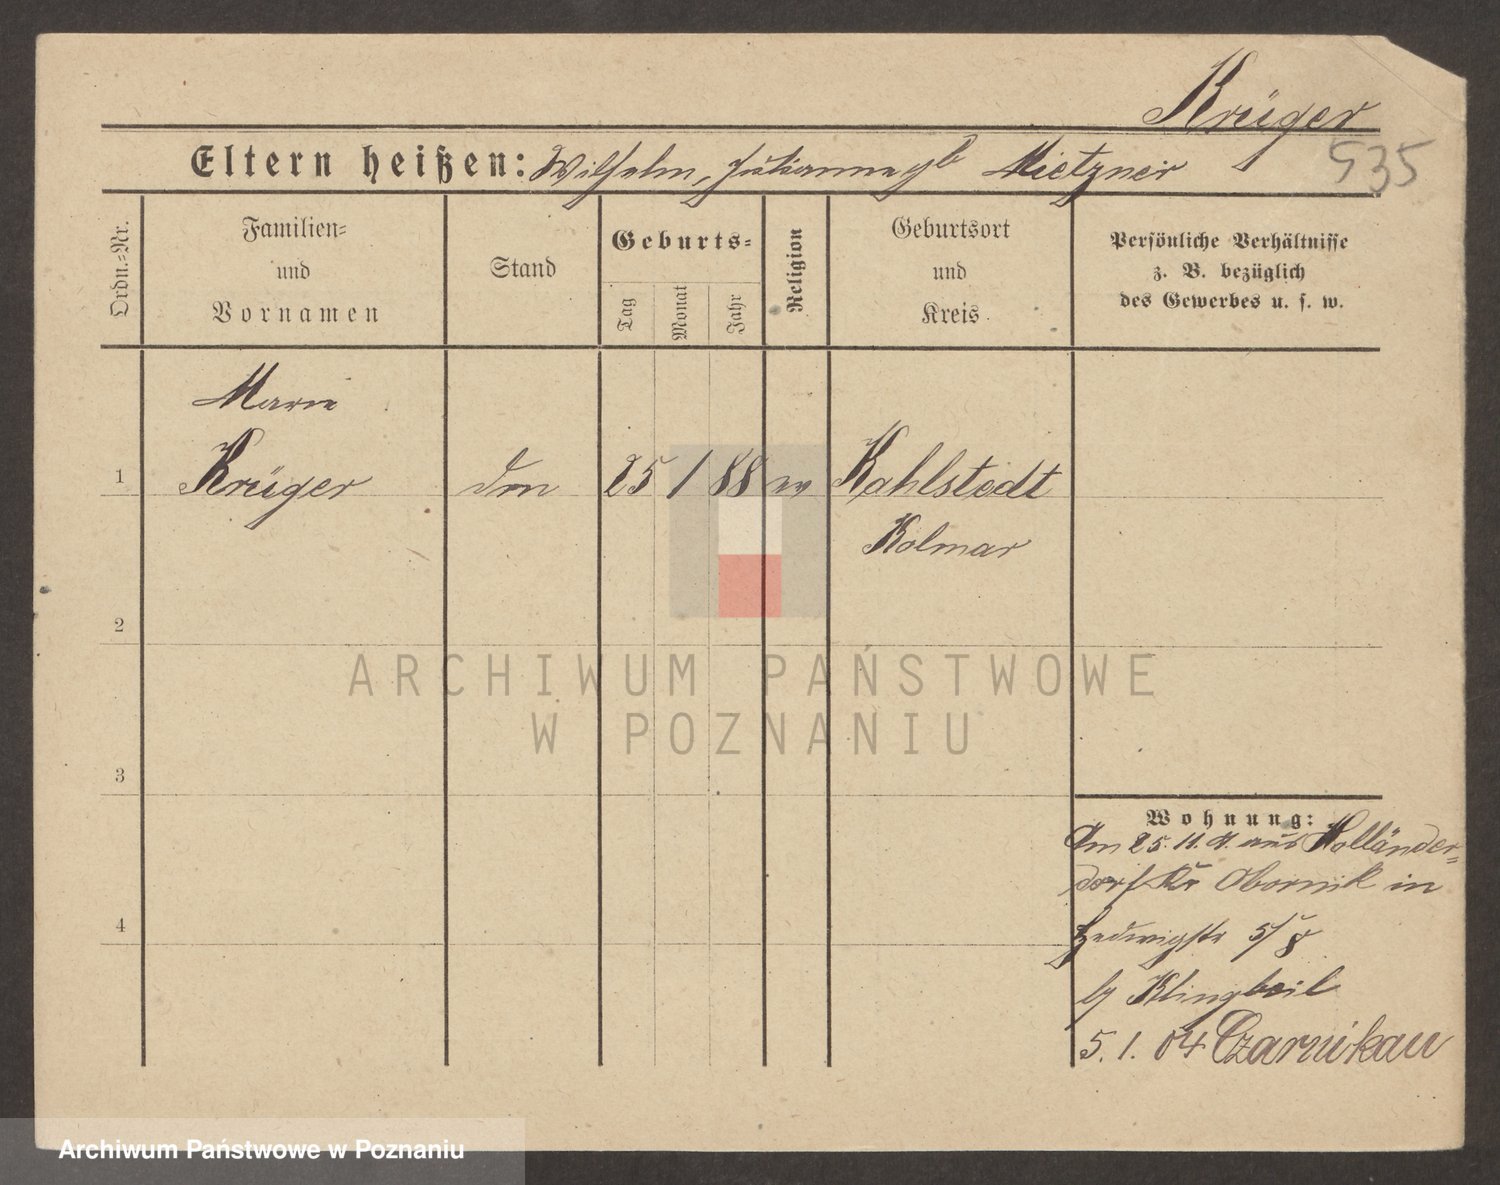 Krüger
535
Eltern heißen: Wilhelm, Julianna gb Mietzner
Ordn.=Nr.
Familien=
und
Vornamen
Stand
Geburts=
Tag
Monat
Jahr
Religion
Geburtsort
und
Kreis
Persönliche Verhältnisse
z. B. bezüglich
des Gewerbes u. s. w.
Marie
1 Krüger 25 1 88 ev Kahlstedt
Kolmar
2
3
4
Wohnung:
Am 25.11. aus Holländer=
dorf Kr Obornik in
Hedwigstr 5/8
by Klingbeil
5.1.04 Czarnikau
ARCHIWUM PAŃSTWOWE
W POZNANIU
Archiwum Państwowe w Poznaniu